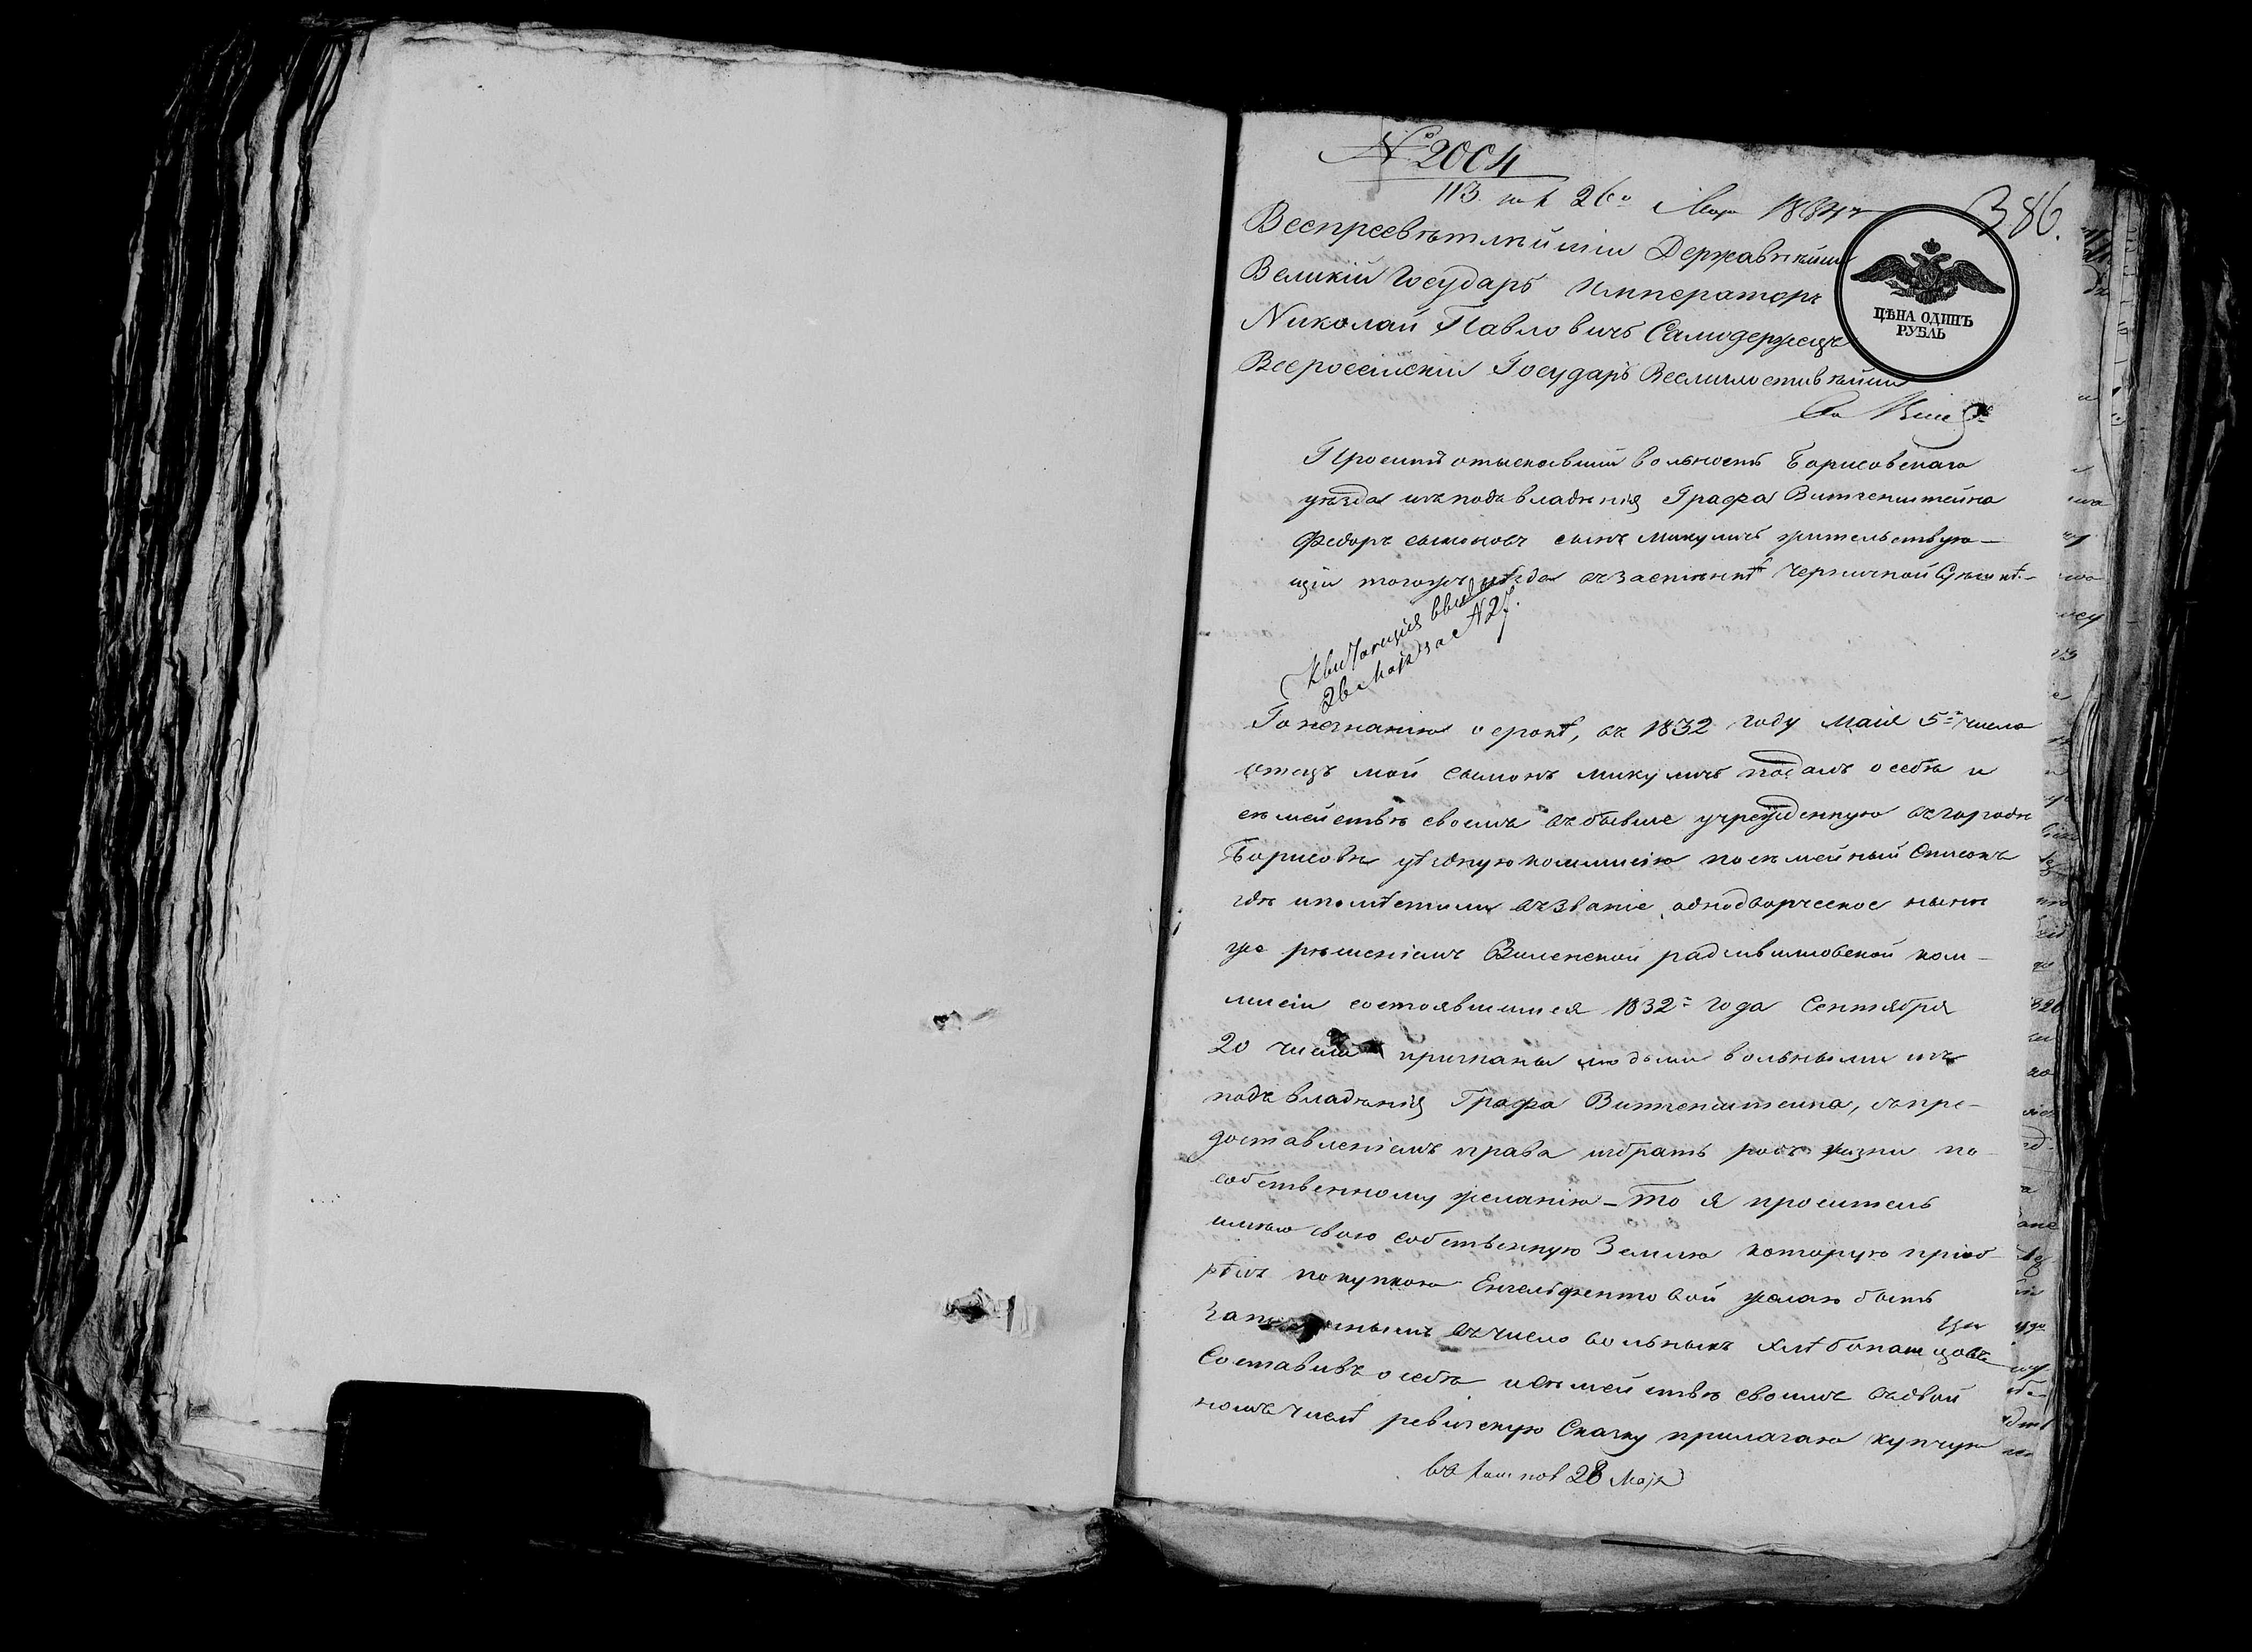 № 2004
113 26го Мая 1834
386.
Всепресветлейший Державнейший
Великий Государь Император
Николай Павловичъ Самодержецъ
Всероссийский Государь Всемилостивейший
ЦѢНА ОДИНЪ
РУБЛЬ
Просит отыскавший вольность Борисовского
уезда изъ подъ владения Графа Витгенштейна
Федоръ Сымоновъ сынъ Микуличъ жительствую-
щий тогожъ уѣзда въ застенкѣ
Квитанция выдана
26 Мая за №27.
По незнанию о срокѣ, въ 1832 году Маия 5го числа
отецъ мой Сымонъ Микуличъ подалъ о себѣ и
сѣмействѣ своемъ въ бывше учрежденную въ городѣ
Борисовѣ уѣздную коммисию посѣмейный Списокъ
гдѣ и помѣстили въ звание однодворческое нынѣ
же рѣшениемъ Виленской радзивиловской ком-
мисии состоявшимся 1832го года Сентября
20 числа признаны людьми вольными изъ
подъ владѣния Графа Витгенштейна, съ пре-
доставлениемъ права избрать родъ жизни по
собственному желанию – то я проситель
имѣю свою собственную Землю которую приоб-
рѣлъ покупкою желаю быть
въ число вольныхъ хлѣбопашцовъ
Составивъ о себѣ и сѣмействѣ своимъ въ двой
номъ числѣ ревизскую Сказку прилагаю купчую
28 Мая